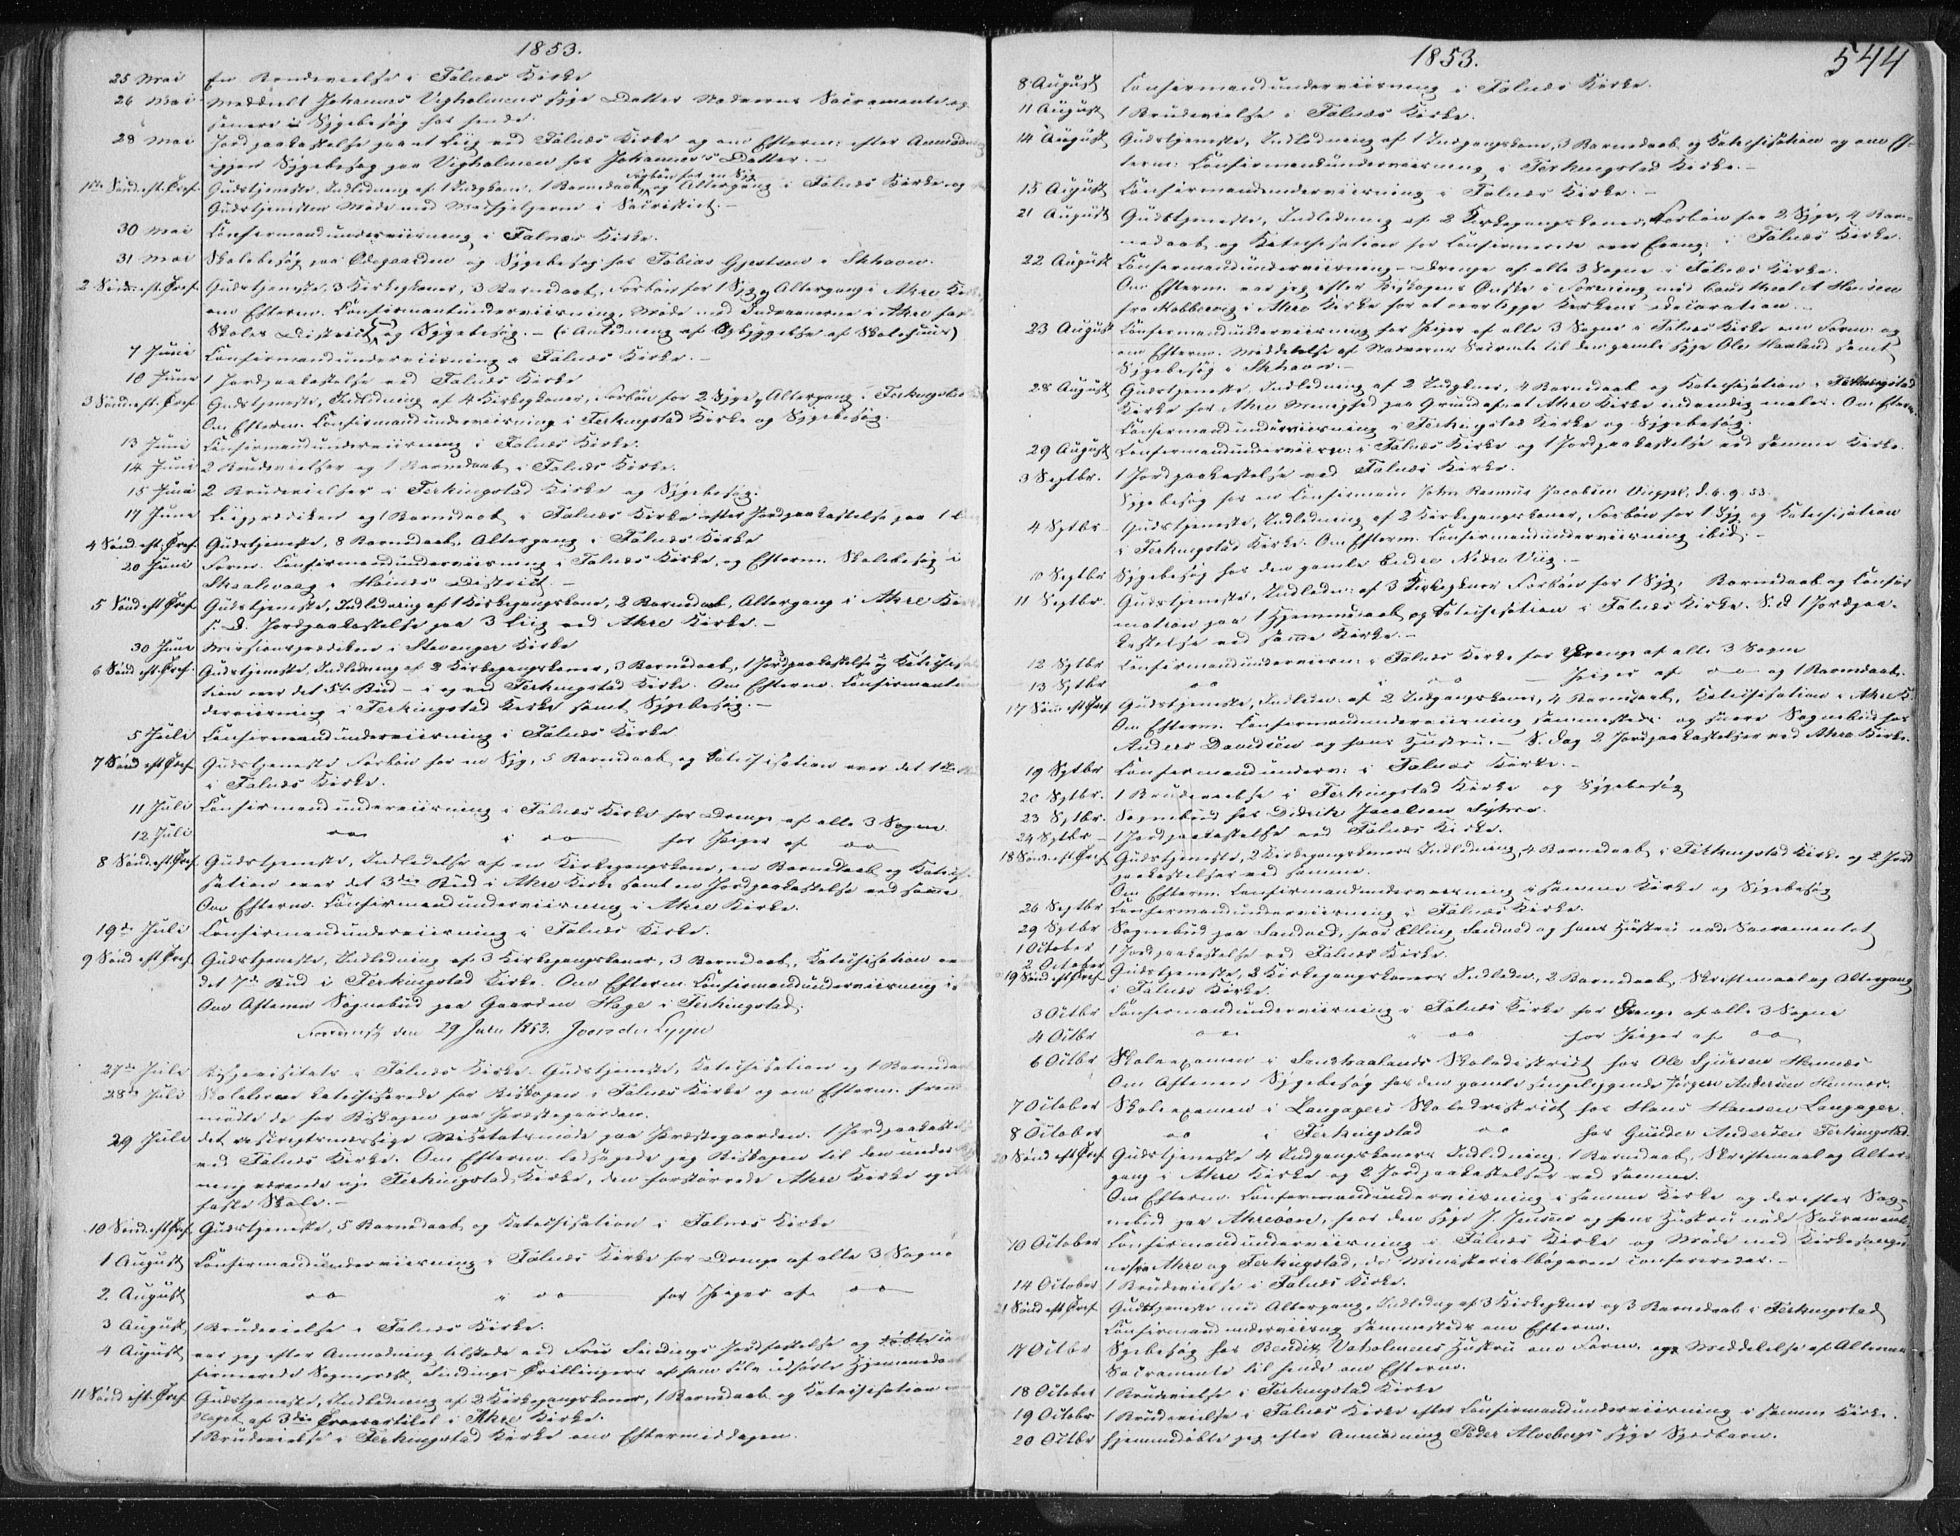 1853.
25 Mai En Brudevielse i Falnæs Kirke
26 Mai Meddeelt Johannes Vigholmens syge Datter Nadverens Sacramente og
senere Sygebesøg hos hende.
28 Mai Jordpaakastelse paa et Liig ved Falnæs Kirke og om Efterm: efter Anmodn
igjen Sygebesøg paa Vigholmen hos Johannes's Datter. —
1ste Sønd. eft. Tref. Gudstjeneste, Indledning af 1 Indgkone, 1 Barnedaab, Forbøn for en Syg og Altergang i Falnæs Kirke og
Gudstjenesten Møde med Medhjelperne i Sacristiet. —
30 Mai Confirmandunderviisning i Falnæs Kirke.
31 Mai Skolebesøg paa Ødegaarden og Sygebesøg hos Tobias Gjertsen i Skhavn.
2 Sønd. eft. Tref. Gudstjeneste, 3 Kirkegkoner, 3 Barnedaab, Forbøn for 1 Syg, Altergang i Akre Kirke
om Efterm. Confirmantunderviisning, Møde med Indvaanerne i Akre
Skoles District og Sygebesøg. — (i Anledning af Opbyggelse af Skolehuus)
7 Juni Confirmandunderviisning i Falnæs Kirke. —
10 Juni 1 Jordpaakastelse ved Falnæs Kirke
3 Sønd. eft. Tref. Gudstjeneste, Indledning af 4 Kirkegkoner, Forbøn for 2 Syge, Altergang i Ferkingstad
Om Efterm. Confirmandunderviisning i Ferkingstad Kirke og Sygebesøg.
13 Juni Confirmandunderviisning i Falnæs Kirke.
14 Juni 2 Brudevielser og 1 Barnedaab i Falnæs Kirke.
15 Juni 2 Brudevielser i Ferkingstad Kirke og Sygebesøg.
17 Juni Liigprædiken og 1 Barnedaab i Falnæs Kirke efter Jordpaakastelse paa 1
4 Sønd. eft. Tref. Gudstjeneste, 8 Barnedaab, Altergang i Falnæs Kirke
20 Juni Form. Confirmandunderviisning i Falnæs Kirke, og Efterm. Skolebesøg i
Skaalevaag i Høines District. —
5 Sønd. eft. Tref. Gudstjeneste, Indledning af 1 Kirkegangskone, 2 Barnedaab, Altergang i Akre Kir
s. D. Jordpaakastelse paa 3 Liig ved Akre Kirke. —
30 Juni Missionsprædiken i Stavanger Kirke
6 Sønd. eft. Tref. Gudstjeneste, Indledning af 2 Kirkegangskoner, 3 Barnedaab, 1 Jordpaakastelse og Katechisa
tion over det 5te Bud — i og ved Ferkingstad Kirke. Om Efterm. Confirmantun
derviisning i Ferkingstad Kirke samt Sygebesøg. —
5 Juli Confirmandunderviisning i Falnæs Kirke
7 Sønd. eft. Tref. Gudstjeneste Forbøn for en Syg, 5 Barnedaab og Catechisation over det
i Falnæs Kirke.
11 Juli Confirmandunderviisning i Falnæs Kirke for Drenge af alle 3 Sogne
12 Juli oo i oo for Piger af oo
8 Sønd. eft. Tref. Gudstjeneste, Indledelse af en Kirkegangskone, en Barnedaab og Katechi
sation over det 3die Bud i Akre Kirke samt en Jordpaakastelse ved samme
Om Efterm. Confirmandunderviisning i Akre Kirke.
19de Juli Confirmandunderviisning i Falnæs Kirke.
9 Sønd eft Tref. Gudstjeneste, Indledning af 3 Kirkegangskoner, 3 Barnedaab, Katechisation ov
det 7de Bud i Ferkingstad Kirke. Om Efterm. Confirmandunderviisning i
Om Aftenen Sognebud paa Gaarden Hage i Ferkingstad.
den 29 Julii 1853.
27de Juli Bispevisitats i Falnæs Kirke. Gudstjeneste, Katechisation og 1 Barnedaab
28de Juli Skolelærere katechiserede for Biskopen i Falnæs Kirke og om Efterm. frem
mødte de for Biskopen paa Præstegaarden.
29 Juli det rescriptsmæssige Visitatsmøde paa Præstegaarden. 1 Jordpaakastelse
ved Falnæs Kirke. Om Efterm. ledsagede jeg Biskopen til den under
ning værende nye Ferkingstad Kirke, den forstørrede Akre Kirke og
faste Skole. —
10 Sønd. eft Tref. Gudstjeneste, 5 Barnedaab og Katechisation i Falnæs Kirke
1 August Confirmandunderviisning i Falnæs Kirke for Drenge af alle 3 Sogne
2 August oo i oo for Piger af oo
3 August 1 Brudevielse i Falnæs Kirke.
4 August var jeg efter Anmodning tilstede ved Jordfæstelse og
firmerede Hjemmedaab
11 Sønd. eft. Tref. Gudstjeneste, Indledning af 2 Kirkegangskoner, 1 Barnedaab og Katechisation
Noget af 3die Troesartikel i Akre Kirke.
1 Brudevielse i Ferkingstad Kirke om Eftermiddagen.
1853.
544
8 August Confirmandunderviisning i Falnæs Kirke.
11 August 1 Brudevielse i Falnæs Kirke.
14 August Gudstjeneste, Indledning af 1 Indgangskone, 3 Barnedaab og Katechisation og om Ef-
term: Confirmandunderviisning i Ferkingstad Kirke. —
15 August Confirmandunderviisning i Falnæs Kirke. —
21 August Gudstjeneste, Indledning af 2 Kirkegangskoner, Forbøn for 2 Syge, 4 Bar-
nedaab og Katechisation for Confirmerede over Evang: i Falnæs Kirke.
22 August Confirmandunderviisning — Drenge af alle 3 Sogne i Falnæs Kirke.
Om Efterm. var jeg efter Biskopens Ønske i Forening med Cand theol A Hansen
fra Kobbervig i Akre Kirke for at overlægge Kirkens Decoration. —
23 August Confirmandunderviisning for Piger af alle 3 Sogne i Falnæs Kirke om Form. og
om Efterm. Meddelelse af Nadverens Sacrmte til den gamle syge Ole Hauland samt
Sygebesøg i Skhavn. —
28 August Gudstjeneste, Indledning af 2 Indgkoner, 4 Barnedaab og Katechisation i Ferkingstad
Kirke for Akre Menighed paa Grund af, at Akre Kirke indvendig males. Om Efterm.
Confirmandunderviisning i Ferkingstad Kirke og Sygebesøg.
29 August Confirmandunderviisn: i Falnæs Kirke og 1 Jordpaakastelse ved samme Kirke.
3 Septbr. 1 Jordpaakastelse ved Falnæs Kirke.
Sygebesøg hos en Confirmant John Rasmus Jacobsen d. 6. 9. 53.
4 Sptbr. Gudstjeneste, Indledning af 2 Kirkegangskoner, Forbøn for 1 Syg og Katechisation
i Ferkingstad Kirke. Om Efterm. Confirmandunderviisning ibid. —
10 Septbr Sygebesøg hos den gamle Endre Nedre Viig. —
11 Septbr. Gudstjeneste, Indledn: af 3 Kirkegkoner Forbøn for 1 Syg, Barnedaab og Confir
mation paa 1 Hjemmedaab og Katechisation i Falnæs Kirke. S. D. 1 Jordpaa-
kastelse ved samme Kirke. —
12 Sptbr Confirmandunderviisn: i Falnæs Kirke for Drenge af alle 3 Sogne
13 Sptbr oo i oo — Piger af oo og 1 Barnedaab.
17 Sønd eft Tref Gudstjeneste, Indledn: af 2 Indgangskoner, 4 Barnedaab, Katechisation i Akre K.
Om Efterm. Confirmandunderviisning sammesteds og senere Sognebud hos
Anders Davidsen og hans Hustru. — S. Dag 2 Jordpaakastelser ved Akre Kirke.
19 Sptbr Confirmandunderv: i Falnæs Kirke. —
20 Sptbr. 1 Brudevielse i Ferkingstad Kirke og Sygebesøg
23 Sptbr. Sognebud hos Didrik Jacobsen Syhre.
24 Sptbr — 1 Jordpaakastelse ved Falnæs Kirke.
18 Sønd. eft Tref Gudstjeneste, 2 Kirkegangskoners Indledning, 4 Barnedaab i Ferkingstad Kirke og 2 Jord
paakastelser ved samme.
Om Efterm. Confirmandunderviisning i samme Kirke og Sygebesøg
26 Septbr Confirmandunderviisning i Falnæs Kirke.
29 Sptbr Sognebud paa Sandved, hvor Elling Sandved og hans Hustru nøde Sacramentet
1 October 1 Jordpaakastelse ved Falnæs Kirke.
2 October
19 Sønd eft Tref Gudstjeneste, 2 Kirkegangskoners Indledn, 2 Barnedaab, Skriftemaal og Altergang
i Falnæs Kirke.
3 Octbr Confirmandunderviisning i Falnæs Kirke for Drenge af alle 3 Sogne
4 Octbr oo i oo for Piger af oo
6 Octbr Skoleexamen i Sandhaalands Skoledistrict hos Ole Sjursen Hemnæs
Om Aftenen Sygebesøg hos den gamle sengeliggende Jørgen Andersen Hemnæs.
7 October Skoleexamen i Langagers Skoledistrict hos Hans Hansen Langager.
8 October oo i Ferkingstad oo hos Gunder Andersen Ferkingstad.
20 Sønd eft Tref Gudstjeneste 4 Indgangskoners Indledning, 1 Barnedaab, Skriftemaal og Alter-
gang i Akre Kirke og 2 Jordpaakastelser ved samme.
Om Efterm. Confirmandunderviisning i samme Kirke og derefter Sog-
nebud paa Akreøen, hvor den syge J. Jensen og hans Hustru nøde Sacrament.
10 October Confirmandunderviisning i Falnæs Kirke og Møde med Kirkesanger
ne fra Akre og Ferkingstad, da Ministerialbøgerne confereredes. —
14 October 1 Brudevielse i Falnæs Kirke.
21 Sønd eft Tref. Gudstjeneste med Altergang, Indledng af 3 Kirkegkoner og 3 Barnedaab i Ferkingstad
Confirmandunderviisng sammesteds om Efterm.
17 Octbr Sygebesøg hos Bendix Vaholmens Hustru om Form. og Meddelelse af Alterens
Sacramente til hende om Efterm.
18 October 1 Brudevielse i Ferkingstad Kirke
19 Octobr 1 Brudevielse i Falnæs Kirke efter Confirmandunderviisning i samme Kirke.
20 Octbr hjemmedøbte jeg efter Anmodning Peder Alvebergs syge Spædbarn.